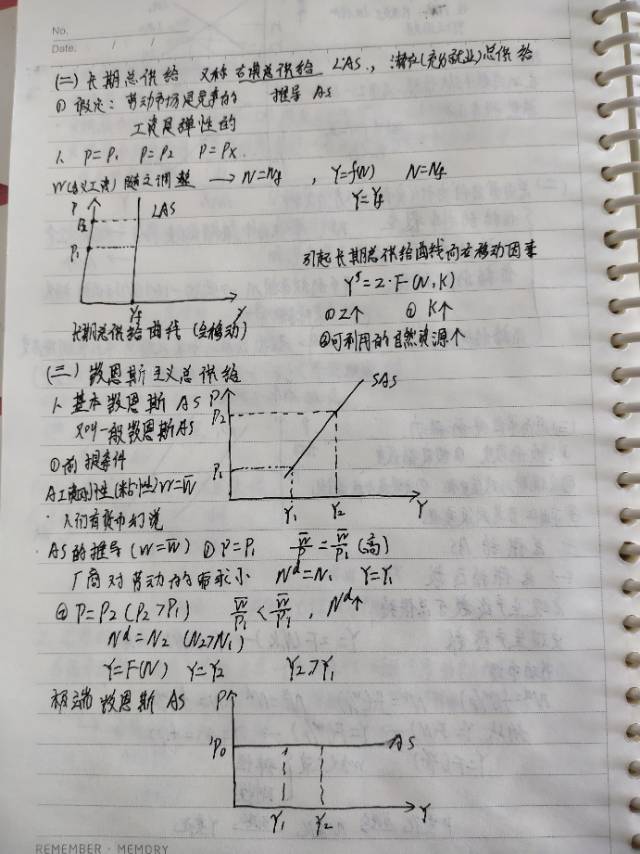 No.
Date.    /    /
(二) 长期总供给 又称古典总供给 LAS., 潜在(充分就业)总供给
① 假定: 劳动市场是竞争的   推导 AS
工资是弹性的
1. P=P1  P=P2  P=Px.
W(名义工资) 随之调整 → N=Nf , Y=f(N)  N=Nf
Y=Yf
P
P2
LAS
P1
Yf
Y
长期总供给曲线
引起长期总供给曲线向右移动因素
Y^s=Z·F(N,K)
①Z↑  ② K↑
③可利用的自然资源↑
(三) 凯恩斯主义总供给
1. 基本凯恩斯 AS
又叫一般凯恩斯AS
①前提条件
A工资刚性(粘性)W=W̄
人们有货币幻觉
P
P2
P1
SAS
Y1
Y2
Y
AS的推导 (W=W̄) ① P=P1  W̄/P=W̄/P1 (高)
厂商对劳动的需求小  N^d=N1  Y=Y1
② P=P2 (P2>P1)  W̄/P2<W̄/P1 , N^d↑
N^d=N2 (N2>N1)
Y=F(N)  Y=Y2  Y2>Y1
极端凯恩斯 AS
P
P0
AS
Y1
Y2
Y
REMEMBER · MEMORY